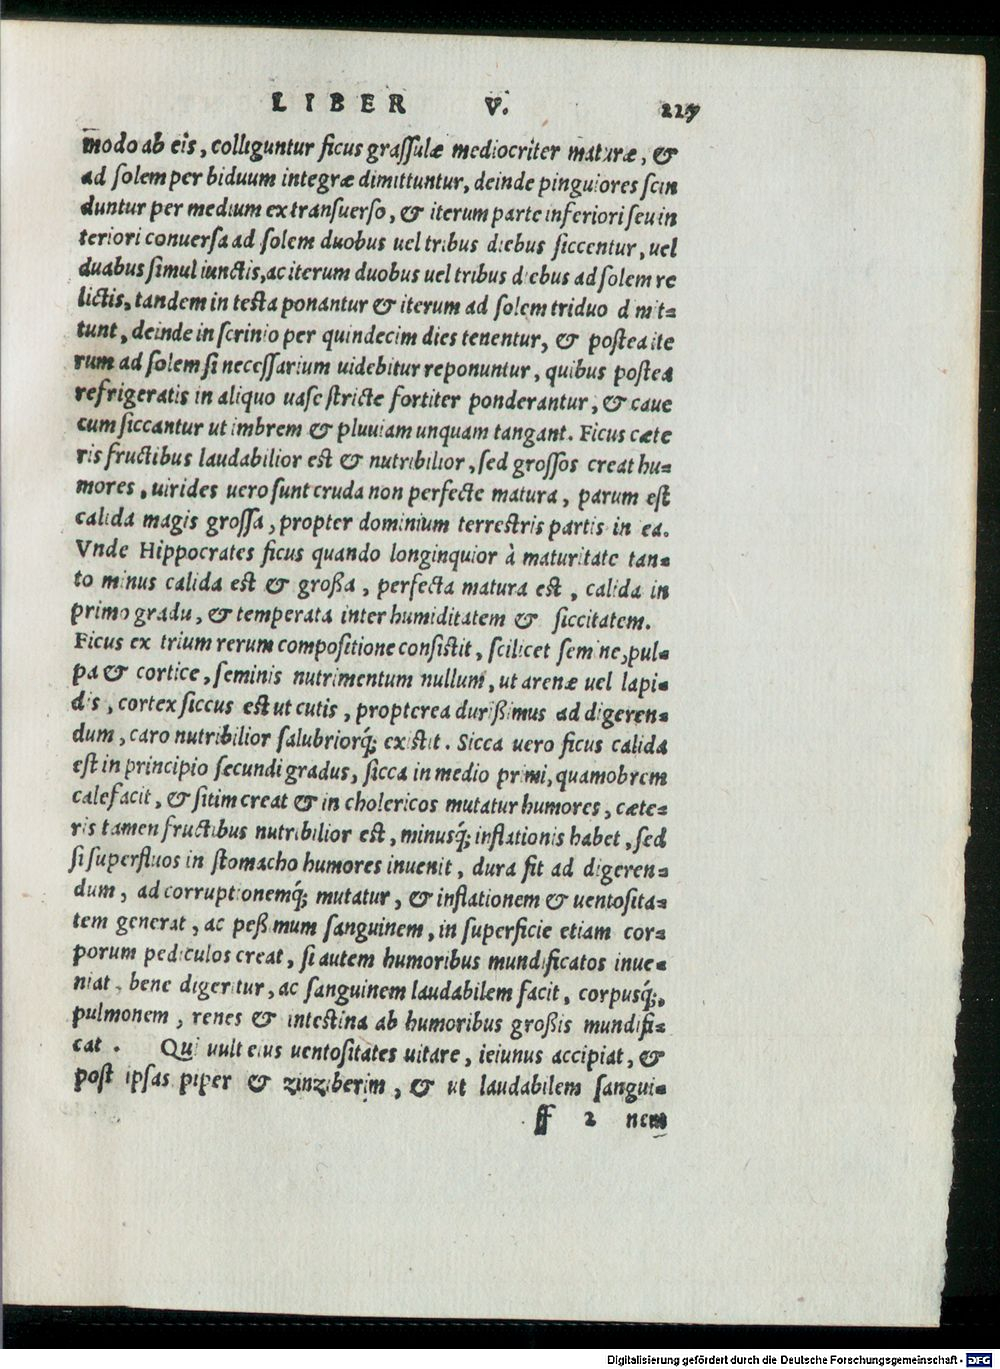 LIBER V. 227
modo ab eis, colliguntur ficus graſſulæ mediocriter maturæ, &
ad ſolem per biduum integræ dimittuntur, deinde pinguiores ſcin
duntur per medium ex tranſuerſo, & iterum parte inferiori ſeu in
teriori conuerſa ad ſolem duobus uel tribus diebus ſiccentur, uel
duabus ſimul iunctis, ac iterum duobus uel tribus diebus ad ſolem re
lictis, tandem in teſta ponantur & iterum ad ſolem triduo dimit=
tunt, deinde in ſcrinio per quindecim dies tenentur, & poſtea ite
rum ad ſolem ſi neceſſarium uidebitur reponuntur, quibus poſtea
refrigeratis in aliquo uaſe ſtricte fortiter ponderantur, & caue
cum ſiccantur ut imbrem & pluuiam unquam tangant. Ficus cæte
ris fructibus laudabilior eſt & nutribilior, ſed groſſos creat hu=
mores, uirides uero ſunt cruda non perfecte matura, parum eſt
calida magis groſſa, propter dominium terreſtris partis in ea.
Vnde Hippocrates ficus quando longinquior à maturitate tan=
to minus calida eſt & großa, perfecta matura eſt, calida in
primo gradu, & temperata inter humiditatem & ſiccitatem.
Ficus ex trium rerum compoſitione conſiſtit, ſcilicet ſemine, pul=
pa & cortice, ſeminis nutrimentum nullum, ut arenæ uel lapi=
dis, cortex ſiccus eſt ut cutis, propterea durißimus ad digeren=
dum, caro nutribilior ſalubriorq́; exiſtit. Sicca uero ficus calida
eſt in principio ſecundi gradus, ſicca in medio primi, quamobrem
calefacit, & ſitim creat & in cholericos mutatur humores, cæte=
ris tamen fructibus nutribilior eſt, minusq́; inflationis habet, ſed
ſi ſuperfluos in ſtomacho humores inuenit, dura fit ad digeren=
dum, ad corruptionemq́; mutatur, & inflationem & uentoſita=
tem generat, ac peßimum ſanguinem, in ſuperficie etiam cor=
porum pediculos creat, ſi autem humoribus mundificatos inue=
niat, bene digeritur, ac ſanguinem laudabilem facit, corpusq́;,
pulmonem, renes & inteſtina ab humoribus großis mundifi=
cat. Qui uult eius uentoſitates uitare, ieiunus accipiat, &
poſt ipſas piper & zinziberim, & ut laudabilem ſangui=
ff 2 nem
Digitalisierung gefördert durch die Deutsche Forschungsgemeinschaft - DFG